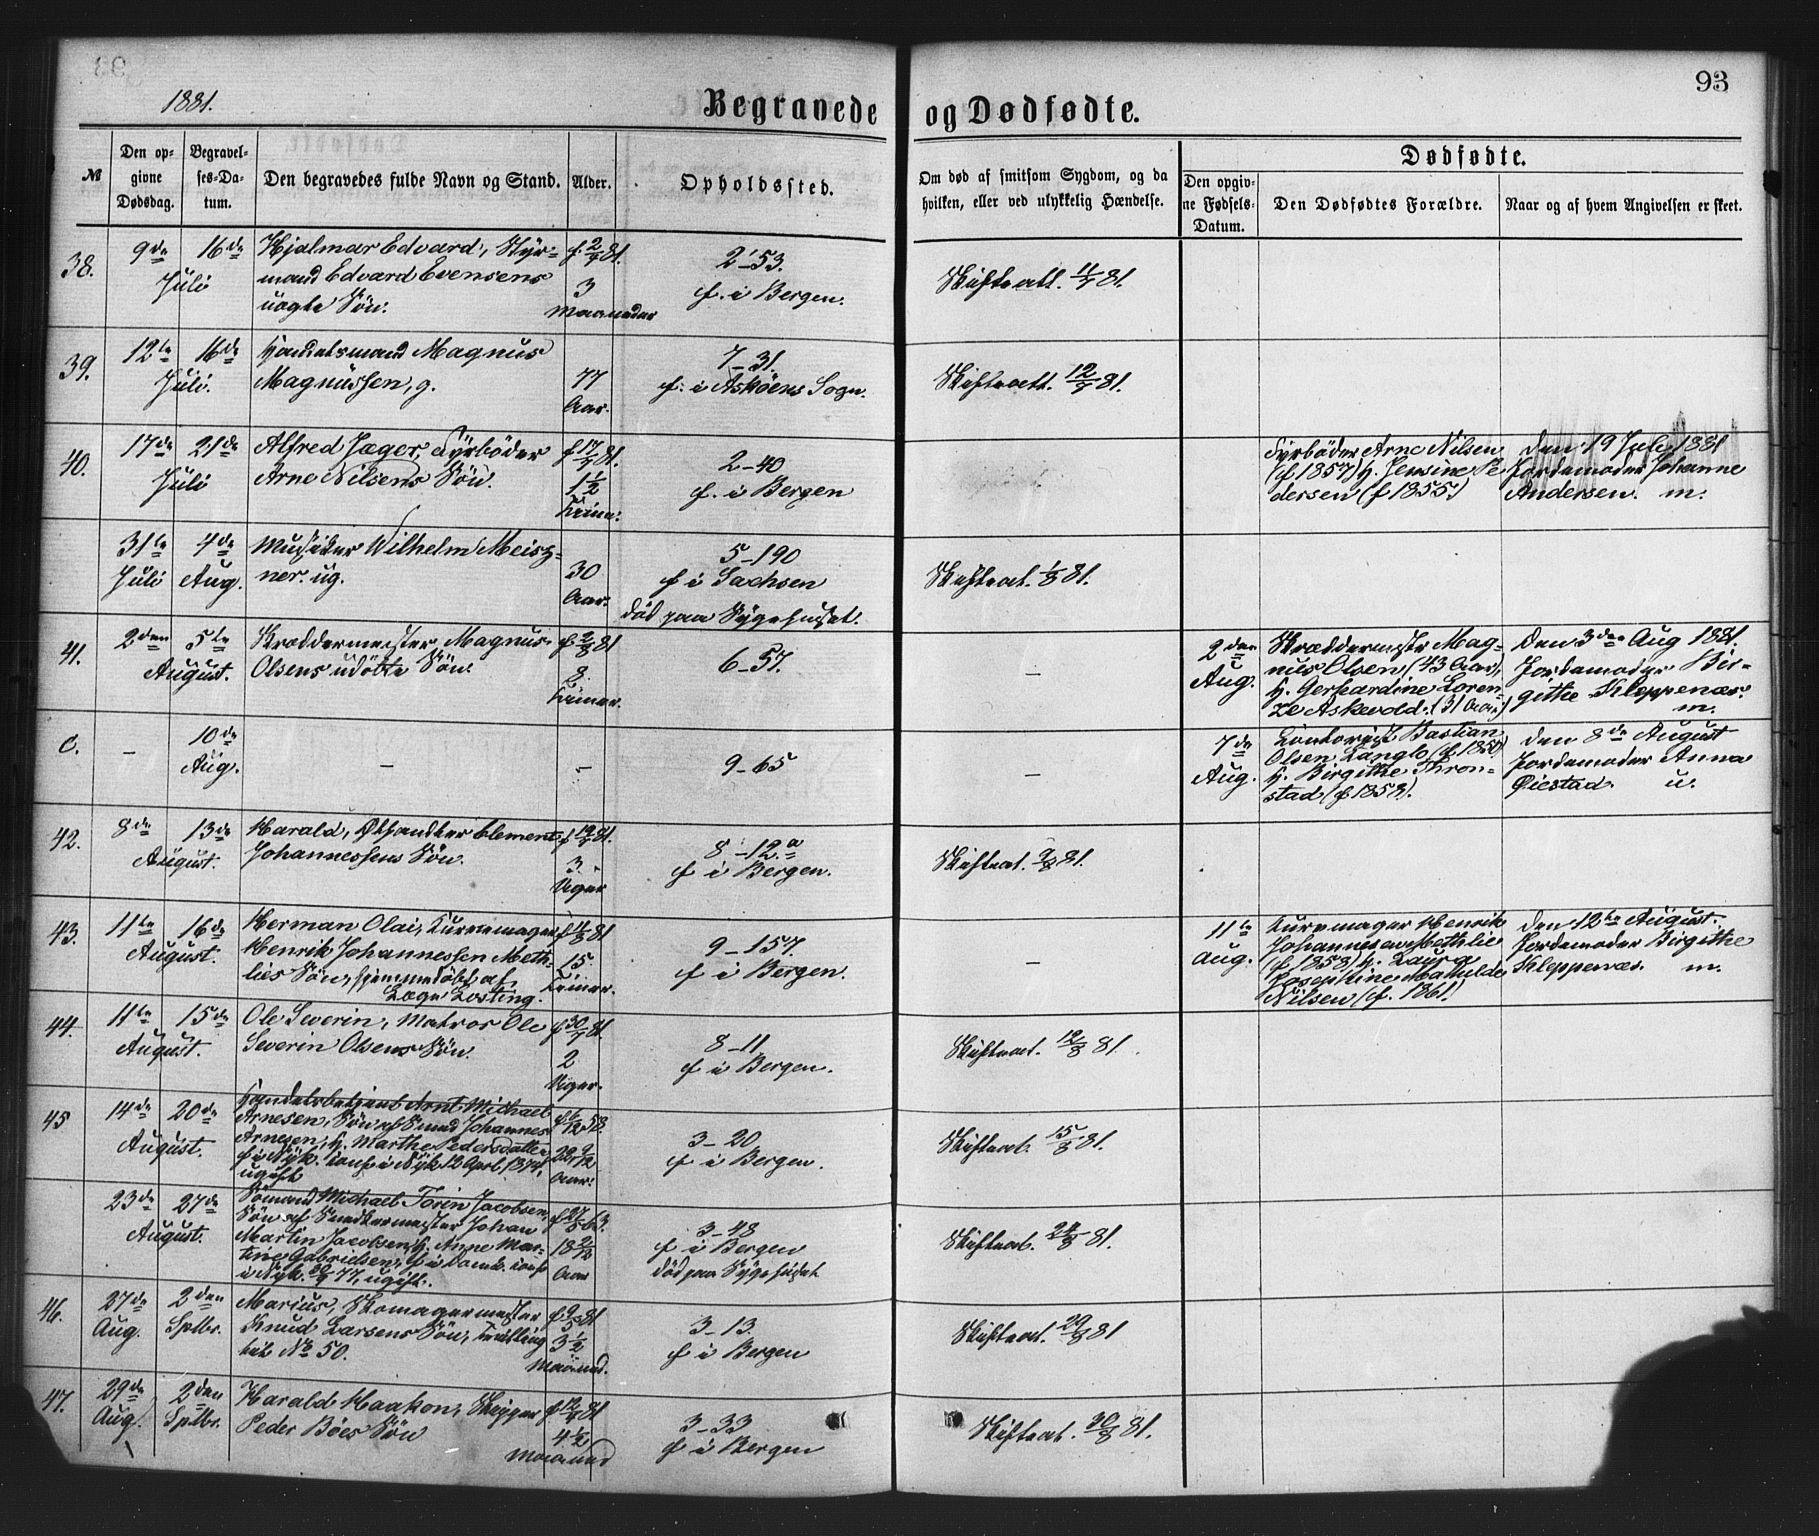 93
1881.
Begravede og Dødfødte.
№
Den opgivne Dødsdag.
Begravelses-Datum.
Den begravedes fulde Navn og Stand.
Alder.
Opholdssted.
Om død af smitsom Sygdom, og da hvilken, eller ved ulykkelig Hændelse.
Dødfødte.
Den opgivne Fødsels-Datum.
Den Dødfødtes Forældre.
Naar og af hvem Angivelsen er skeet.
38. 9de Juli 16de
Hjalmar Edvard, Styr=
mand Edvard Evensens
uægte Søn.
f. 2/4 81. 3 Maaneder
2-53.
f. i Bergen.
Skifteatt. 11/7 81.
39. 12te Juli. 16de
Handelsmand Magnus
Magnussen, g.
77 Aar.
7-31.
f. i Askøens Sogn.
Skifteatt. 12/7 81.
40. 17de Juli 21de
Alfred Jæger, Fyrbøder
Arne Nilsens Søn.
f 17/7 81. 1½ Time.
2-40
f. i Bergen
Fyrbøder Arne Nilsen
(f 1857) H. Jensine Pe
dersen (f 1855)
den 19 Juli 1881
Jordemoder Johanne
Andersen. m.
31te Juli 4de Aug.
Musiker Wilhelm Meisz=
ner. ug.
30 Aar.
5-190
f i Sachsen
død paa Sygehuset.
Skifteat. 1/8 81.
41. 2den August. 5te
Skræddermester Magnus
Olsens udøbte Søn.
f. 2/8 81 2 Timer.
6-57.
-
2den Aug.
Skræddermester Mag=
nus Olsen (43 Aar),
H. Gerhardine Loren=
ze Askevold. (31 Aar)
den 3den Aug 1881.
Jordemoder Bir=
githe Kleppenæs.
m.
0. - 10de Aug.
-
-
9-65
-
7de Aug.
Contorist Bastian
Olsen Langlo (f 1850)
H. Birgithe Thron=
stad (f 1858).
den 8de August
Jordemoder Anna
Øiestad. u.
42. 8de August. 13de
Harald, Ølhandler Clement
Johannessens Søn.
f 19/7 81. 3 Uger
8-12.a
f i Bergen.
Skifteat. 9/8 81.
43. 11te August. 16de
Herman Olai, Kurvemager
Henrik Johannessen Meth=
lies Søn, hjemmedøbt af
Læge Losting.
f 11/8 81 15 Timer.
9-157.
f i Bergen.
-
11te Aug.
Kurvemager Henrik
Johannesen Methlie
(f 1858) H. Laura
Josephine Mathilde
Nilsen (f. 1861)
den 12te August.
Jordemoder Birgithe
Kleppenæs. m.
44. 11te August. 15de
Ole Severin, Matros Ole
Severin Olsens Søn.
f 30/7 81. 2 Uger.
8-11
f i Bergen.
Skifteat. 12/8 81.
45 14de August. 20de
Handelsbetjent Arnt Michael
Arnesen, Søn af Smed Johannes
Arnesen, H. Marthe Pedersdatter
f i Nyk. conf i Nyk 12 April 1874,
ugift
f 6/12 58. 22 9/12 Aar.
3-20
f i Bergen.
Skifteat. 15/8 81.
23de August. 27de
Sømand Michael Torin Jacobsen,
Søn af Snedkermester Johan
Martin Jacobsen, H. Anne Mar=
tine Gabrielsen, f i Domk. conf
i Nyk. 77, ugift.
f 27/5 63. 18 2/12 Aar
3-48
f i Bergen
død paa Sygehuset
Skifteat. 24/8 81.
46. 27de Aug. 2den Sptbr.
Marius, Skomagermester
Knud Larsens Søn, tvilling
til No 50.
f 9/5 81 3½ Maaned.
3-13.
f i Bergen
Skifteat. 29/8 81
47. 29de Aug. 2den Sptbr.
Harald Haakon, Skipper
Peder Bøes Søn
f 12/4 81 4½ Maaned
3-33
f i Bergen
Skifteat. 30/8 81.